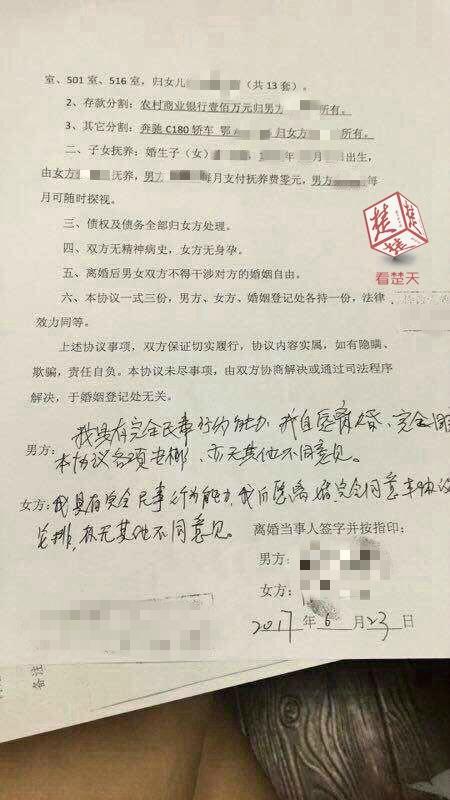 室、501 室、516 室，归女儿（共 13 套）。
2、存款分割：农村商业银行壹佰万元归男方所有。
3、其它分割：奔驰 C180 轿车 鄂 归女方所有。
二、子女抚养：婚生子（女） 年 月 日出生，
由女方 抚养，男方 每月支付抚养费零元，男方 每
月可随时探视。
三、债权及债务全部归女方处理。
四、双方无精神病史，女方无身孕。
五、离婚后男女双方不得干涉对方的婚姻自由。
六、本协议一式三份，男方、女方、婚姻登记处各持一份，法律
效力同等。
上述协议事项，双方保证切实履行，协议内容实属，如有隐瞒、
欺骗，责任自负。本协议未尽事项，由双方协商解决或通过司法程序
解决，于婚姻登记处无关。
男方：我具有完全民事行为能力，我自愿离婚，完全同
本协议各项安排，亦无其他不同意见。
女方：我具有完全民事行为能力，我自愿离婚完全同意本协议
安排，亦无其他不同意见。
离婚当事人签字并按指印：
男方：
女方：
2017 年 6 月 23 日
备注
楚
楚
看楚天